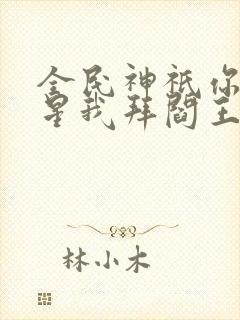 全民神祇你
星我拜閻王
林小木